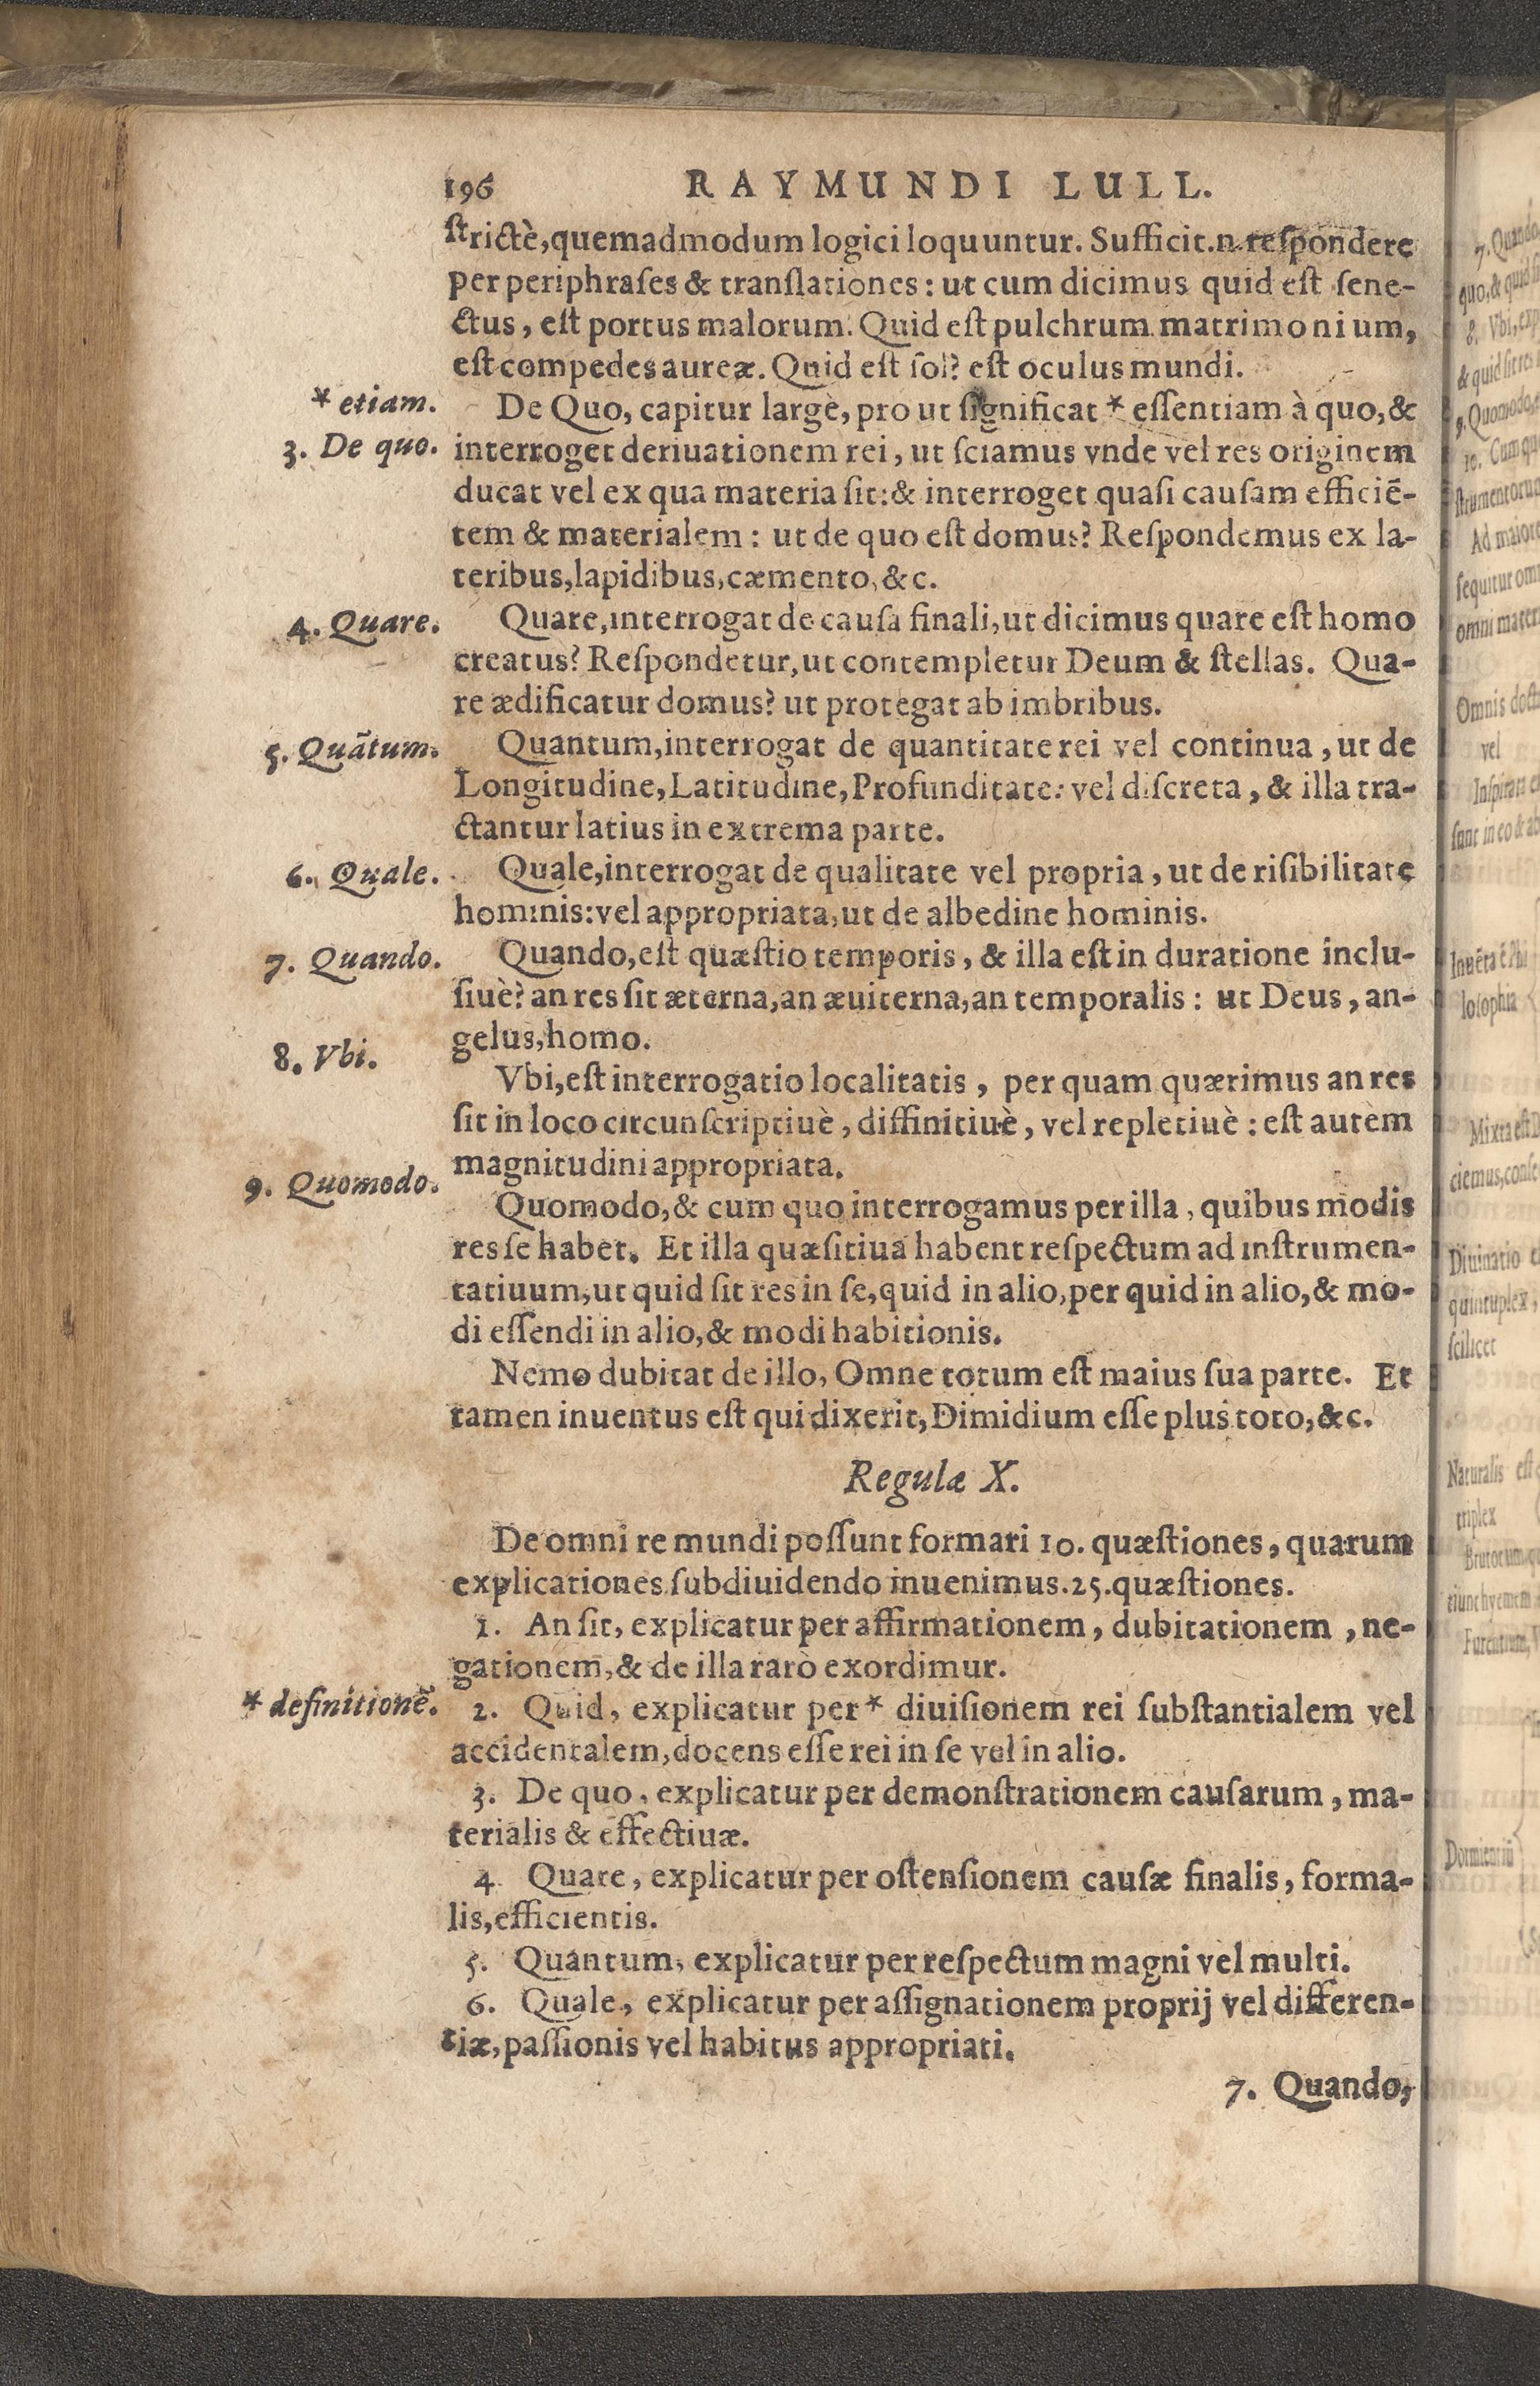 196 RAYMUNDI LULL.
ſtrictè, quemadmodum logici loquuntur. Sufficit .n. reſpondere
per periphraſes & tranſlationes: ut cum dicimus quid eſt ſene-
ctus, eſt portus malorum. Quid eſt pulchrum matrimonium,
eſt compedes aureæ. Quid eſt ſol? eſt oculus mundi.
* etiam.
De Quo, capitur largè, pro ut ſignificat * eſſentiam à quo, &
3. De quo.
interroget deriuationem rei, ut ſciamus vnde vel res originem
ducat vel ex qua materia ſit: & interroget quaſi cauſam efficiẽ-
tem & materialem: ut de quo eſt domus? Reſpondemus ex la-
teribus, lapidibus, cæmento, &c.
4. Quare.
Quare, interrogat de cauſa finali, ut dicimus quare eſt homo
creatus? Reſpondetur, ut contempletur Deum & ſtellas. Qua-
re ædificatur domus? ut protegat ab imbribus.
5. Quãtum.
Quantum, interrogat de quantitate rei vel continua, ut de
Longitudine, Latitudine, Profunditate: vel diſcreta, & illa tra-
ctantur latius in extrema parte.
6. Quale.
Quale, interrogat de qualitate vel propria, ut de riſibilitate
hominis: vel appropriata, ut de albedine hominis.
7. Quando.
Quando, eſt quæſtio temporis, & illa eſt in duratione inclu-
ſiuè? an res ſit æterna, an æuiterna, an temporalis: ut Deus, an-
gelus, homo.
8. Vbi.
Vbi, eſt interrogatio localitatis, per quam quærimus an res
ſit in loco circunſcriptiuè, diffinitiuè, vel repletiuè: eſt autem
magnitudini appropriata.
9. Quomodo.
Quomodo, & cum quo interrogamus per illa, quibus modis
res ſe habet. Et illa quæſitiua habent reſpectum ad inſtrumen-
tatiuum, ut quid ſit res in ſe, quid in alio, per quid in alio, & mo-
di eſſendi in alio, & modi habitionis.
Nemo dubitat de illo, Omne totum eſt maius ſua parte. Et
tamen inuentus eſt qui dixerit, Dimidium eſſe plus toto, &c.
Regulæ X.
De omni re mundi poſſunt formari 10. quæſtiones, quarum
explicationes ſubdiuidendo inuenimus .25. quæſtiones.
1. An ſit, explicatur per affirmationem, dubitationem, ne-
gationem, & de illa rarò exordimur.
* definitionẽ.
2. Quid, explicatur per * diuiſionem rei ſubſtantialem vel
accidentalem, docens eſſe rei in ſe vel in alio.
3. De quo, explicatur per demonſtrationem cauſarum, ma-
terialis & effectiuæ.
4. Quare, explicatur per oſtenſionem cauſæ finalis, forma-
lis, efficientis.
5. Quantum, explicatur per reſpectum magni vel multi.
6. Quale, explicatur per aſſignationem proprij vel differen-
tiæ, paſſionis vel habitus appropriati.
7. Quando,
7. Quando
quo, & quid
8. Vbi, exp
9. Quomodo,
10. Cum qu
Ad maiore
ſequitur om
Omnis doct
vel
loſophia
Mixta eſt D
Diuinatio e
quintuplex,
ſcilicet
Naturalis eſt
triplex